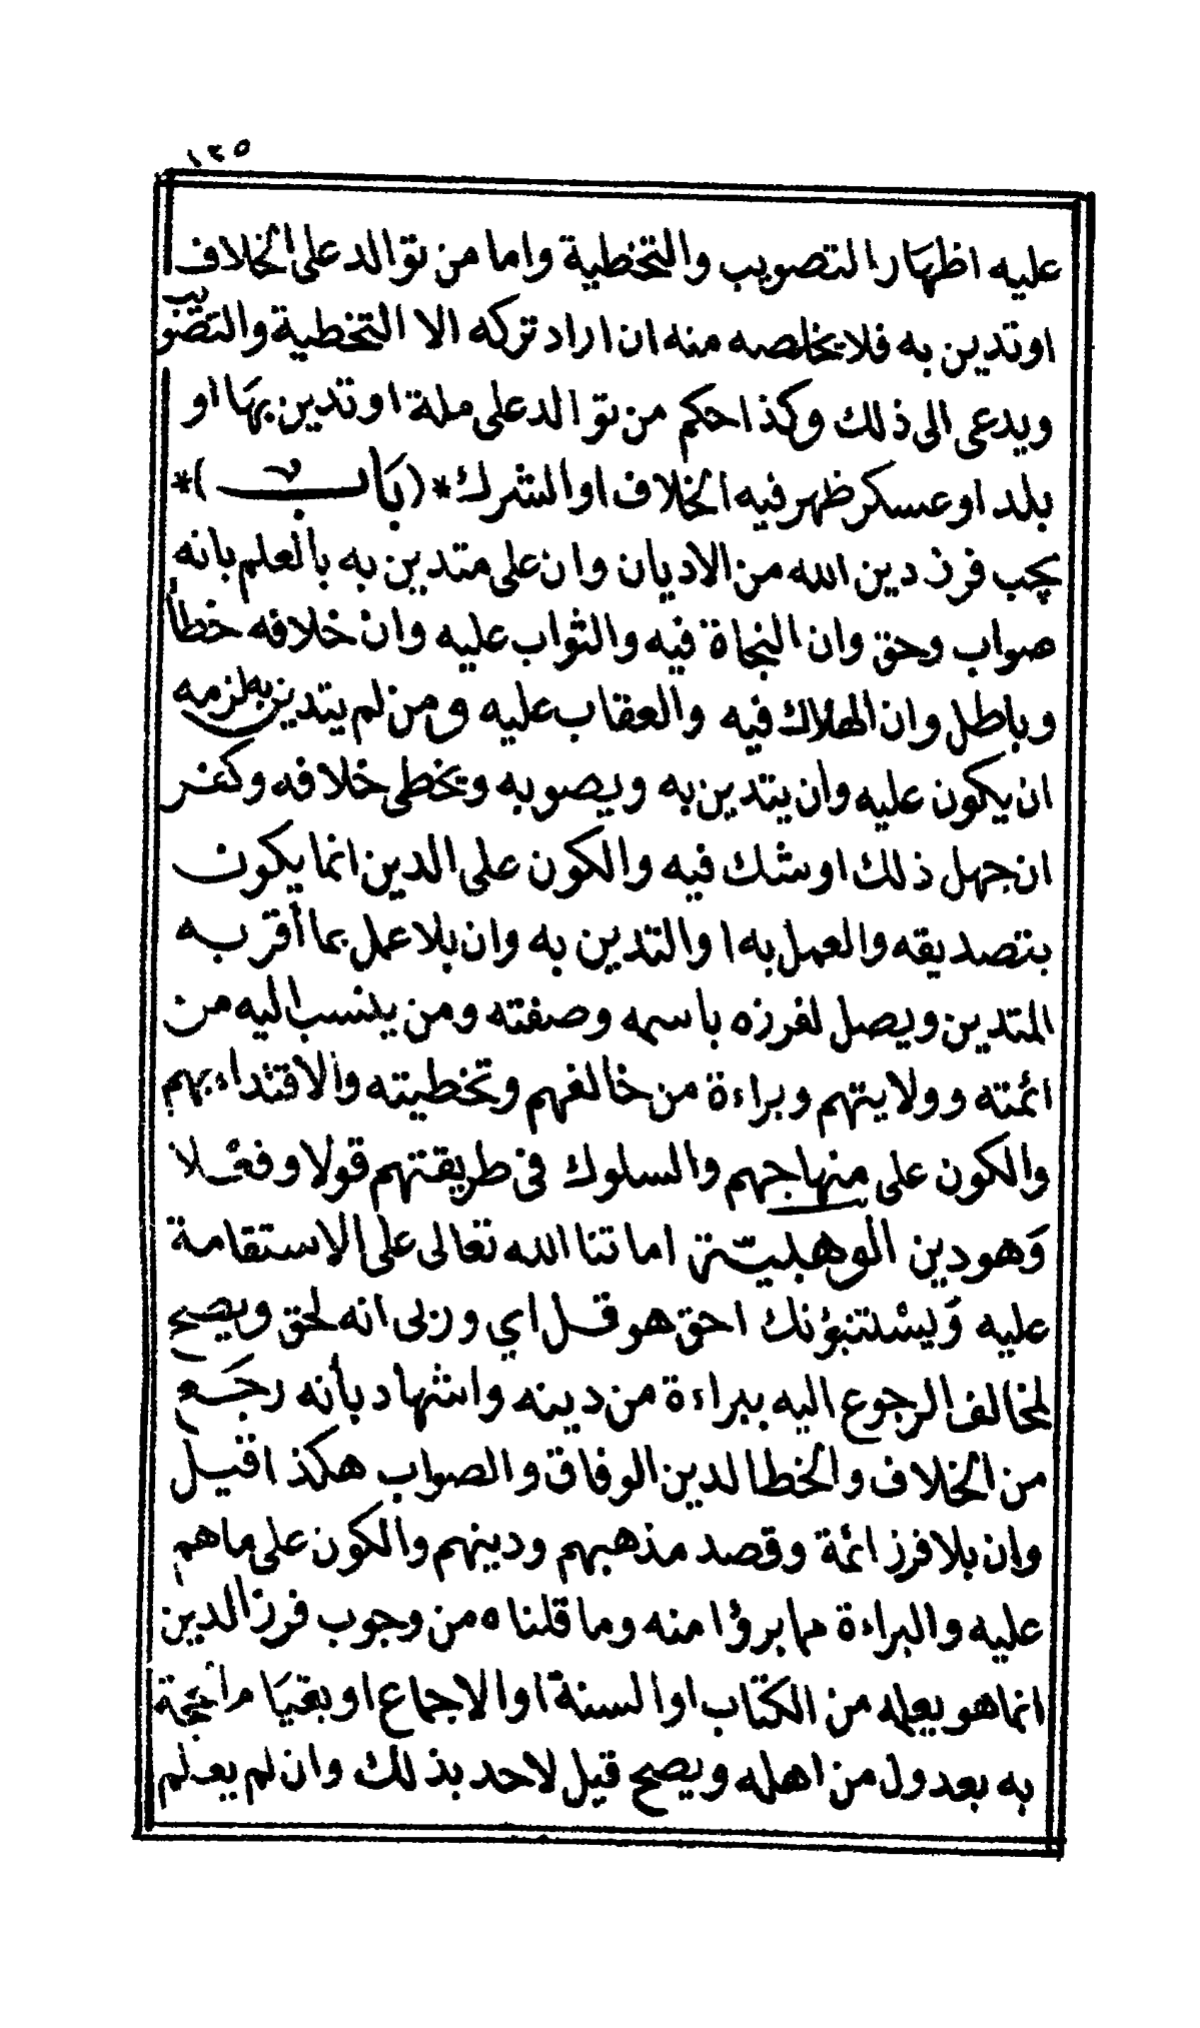 ١٣٥
عليه اظهار التصويب والتخطية واما من توالد على الخلاف
او تدين به فلا يخلصه منه ان اراد تركه الا التخطية والتصويب
ويدعى الى ذلك وكذا حكم من توالد على ملة او تدين بها او
بلد او عسكر ظهر فيه الخلاف او الشرك *(بَاب)*
يجب فرز دين الله من الاديان وان على متدين به بالعلم بانه
صواب وحق وان النجاة فيه والثواب عليه وان خلافه خطأ
وباطل وان الهلاك فيه والعقاب عليه ومن لم يتدين به لزمه
ان يكون عليه وان يتدين به ويصوبه ويخطى خلافه وكفر
ان جهل ذلك او شك فيه والكون على الدين انما يكون
بتصديقه والعمل به ا والتدين به وان بلا عمل بما أقر به
المتدين ويصل لفرزه باسمه وصفته ومن ينسب اليه من
ائمته وولايتهم وبراءة من خالفهم وتخطيته والاقتداء بهم
والكون على منهاجهم والسلوك فى طريقتهم قولا وفعْلا
وَهودين الوهبيّة اماتنا الله تعالى على الاستقامة
عليه وَيسْتنبؤنك احق هو قل اي وربى انه لحق ويصح
لمخالف الرجوع اليه ببراءة من دينه واشهاد بأنه رجَع
من الخلاف والخطا لدين الوفاق والصواب هكذا قيل
وان بلا فرز ائمة وقصد مذهبهم ودينهم والكون على ما هم
عليه والبراءة مما برؤا منه وما قلناه من وجوب فرز الدين
انما هو يعلم من الكتاب او السنة او الاجماع او بقيَا م الحجة
به بعدول من اهله ويصح قيل لاحد بذلك وان لم يعلم